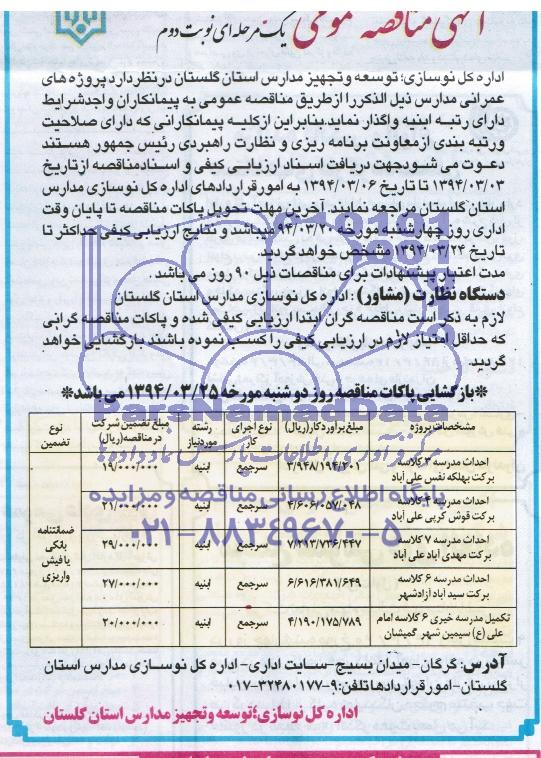 آگهی مناقصه عمومی یک مرحله ای نوبت دوم
اداره کل نوسازی؛ توسعه و تجهیز مدارس استان گلستان در نظر دارد پروژه های
عمرانی مدارس ذیل الذکر را از طریق مناقصه عمومی به پیمانکاران واجد شرایط
دارای رتبه ابنیه واگذار نماید. بنابراین از کلیه پیمانکارانی که دارای صلاحیت
ورتبه بندی از معاونت برنامه ریزی و نظارت راهبردی رئیس جمهور هستند
دعوت می شود جهت دریافت اسناد ارزیابی کیفی و اسناد مناقصه از تاریخ
۱۳۹۴/۰۳/۰۳ تا تاریخ ۱۳۹۴/۰۳/۰۶ به امور قراردادهای اداره کل نوسازی مدارس
استان گلستان مراجعه نمایند. آخرین مهلت تحویل پاکات مناقصه تا پایان وقت
اداری روز چهارشنبه مورخه ۹۴/۰۳/۲۰ میباشد و نتایج ارزیابی کیفی حداکثر تا
تاریخ ۱۳۹۴/۰۳/۲۴ مشخص خواهد گردید.
مدت اعتبار پیشنهادات برای مناقصات ذیل ۹۰ روز می باشد.
دستگاه نظارت (مشاور) : اداره کل نوسازی مدارس استان گلستان
لازم به ذکر است مناقصه گران ابتدا ارزیابی کیفی شده و پاکات مناقصه گرانی
که حداقل امتیاز لازم در ارزیابی کیفی را کسب نموده باشند بازگشایی خواهد
گردید.
*بازگشایی پاکات مناقصه روز دوشنبه مورخه ۱۳۹۴/۰۳/۲۵ می باشد*
ParsNamadData
مرکز فرآوری اطلاعات پارس نماد داده ها
پایگاه اطلاع رسانی مناقصه و مزایده
۰۲۱-۸۸۳۴۹۶۷۰-۵
مشخصات پروژه مبلغ برآورد کار (ریال) نوع اجرای کار رشته موردنیاز مبلغ تضمین شرکت در مناقصه (ریال) نوع تضمین
احداث مدرسه ۳ کلاسه برکت بهلکه نفس علی آباد ۳/۹۴۸/۱۹۴/۲۰۱ سرجمع ابنیه ۱۹/۰۰۰/۰۰۰
احداث مدرسه ۴ کلاسه برکت قوش کرپی علی آباد ۴/۶۰۶/۰۵۷/۰۴۸ سرجمع ابنیه ۲۱/۰۰۰/۰۰۰
احداث مدرسه ۷ کلاسه برکت مهدی آباد علی آباد ۷/۲۱۳/۷۳۶/۴۴۷ سرجمع ابنیه ۲۹/۰۰۰/۰۰۰
احداث مدرسه ۶ کلاسه برکت سید آباد آزادشهر ۶/۶۱۶/۳۸۱/۶۴۹ سرجمع ابنیه ۲۷/۰۰۰/۰۰۰
تکمیل مدرسه خیری ۶ کلاسه امام علی (ع) سیمین شهر گمیشان ۴/۱۹۰/۱۷۵/۷۸۹ سرجمع ابنیه ۲۰/۰۰۰/۰۰۰
ضمانتنامه بانکی یا فیش واریزی
آدرس: گرگان- میدان بسیج- سایت اداری- اداره کل نوسازی مدارس استان
گلستان- امور قراردادها تلفن: ۹-۳۲۴۸۰۱۷۷-۰۱۷
اداره کل نوسازی؛ توسعه و تجهیز مدارس استان گلستان